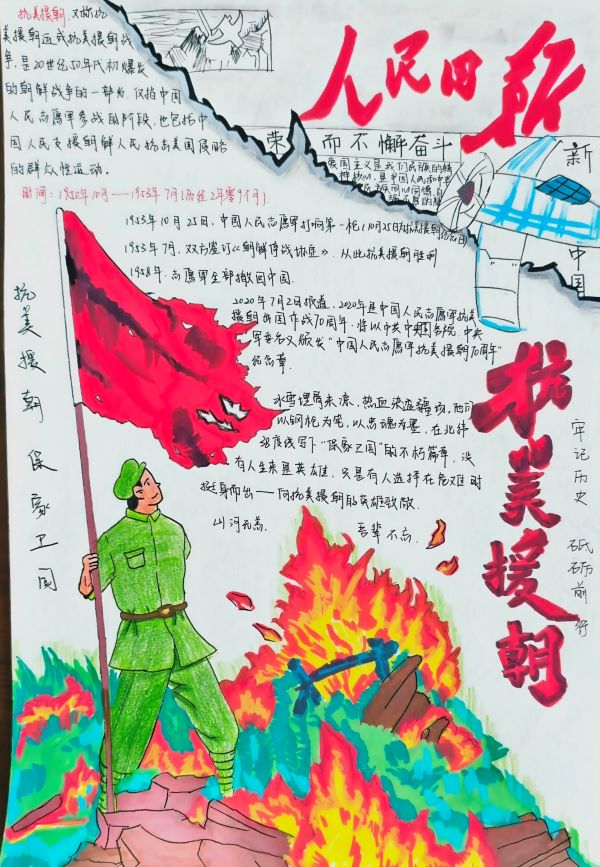 抗美援朝,又称抗
美援朝运动或抗美援朝战
争,是20世纪50年代初爆发
的朝鲜战争的一部分,仅指中国
人民志愿军参战的阶段,也包括中
国人民支援朝鲜人民抗击美国侵略
的群众性运动。
时间:1950年10月——1953年7月1为经2年零9个月。
人民日报
荣 而不懈奋斗
爱国主义是我们民族的精
神核心,是中国人民和中华
新中国
1953年10月25日,中国人民志愿军打响第一枪(10月25日为抗美援朝纪念日)
1953年7月,双方签订《朝鲜停战协定》,从此抗美援朝胜利
1958年,志愿军全部撤回中国.
2020年7月2日报道,2020年是中国人民志愿军抗美
援朝出国作战70周年,将以中共中央国务院 中央
军委名义颁发“中国人民志愿军抗美援朝70周年”
纪念章.
冰雪埋骨未凉,热血染造疆场,他们
以钢枪为笔,以忠魂为墨,在北纬
38度线写下“保家卫国”的不朽篇章,没
有人生来是英雄,只是有人选择在危难时
挺身而出——向抗美援朝的英雄致敬.
山河无恙. 吾辈不忘.
抗美援朝保家卫国
抗美援朝
牢记历史 砥砺前行